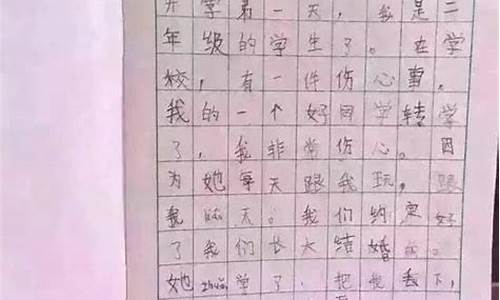 开学第一天，我是二
年级的学生了。在学
校，有一件伤心事。
我的一个好同学转学
了，我非常伤心。因
为她每天跟我玩，跟
我聊天。我们约定好
了我们长大结婚的。
她zhuǎn学了，把我丢下，